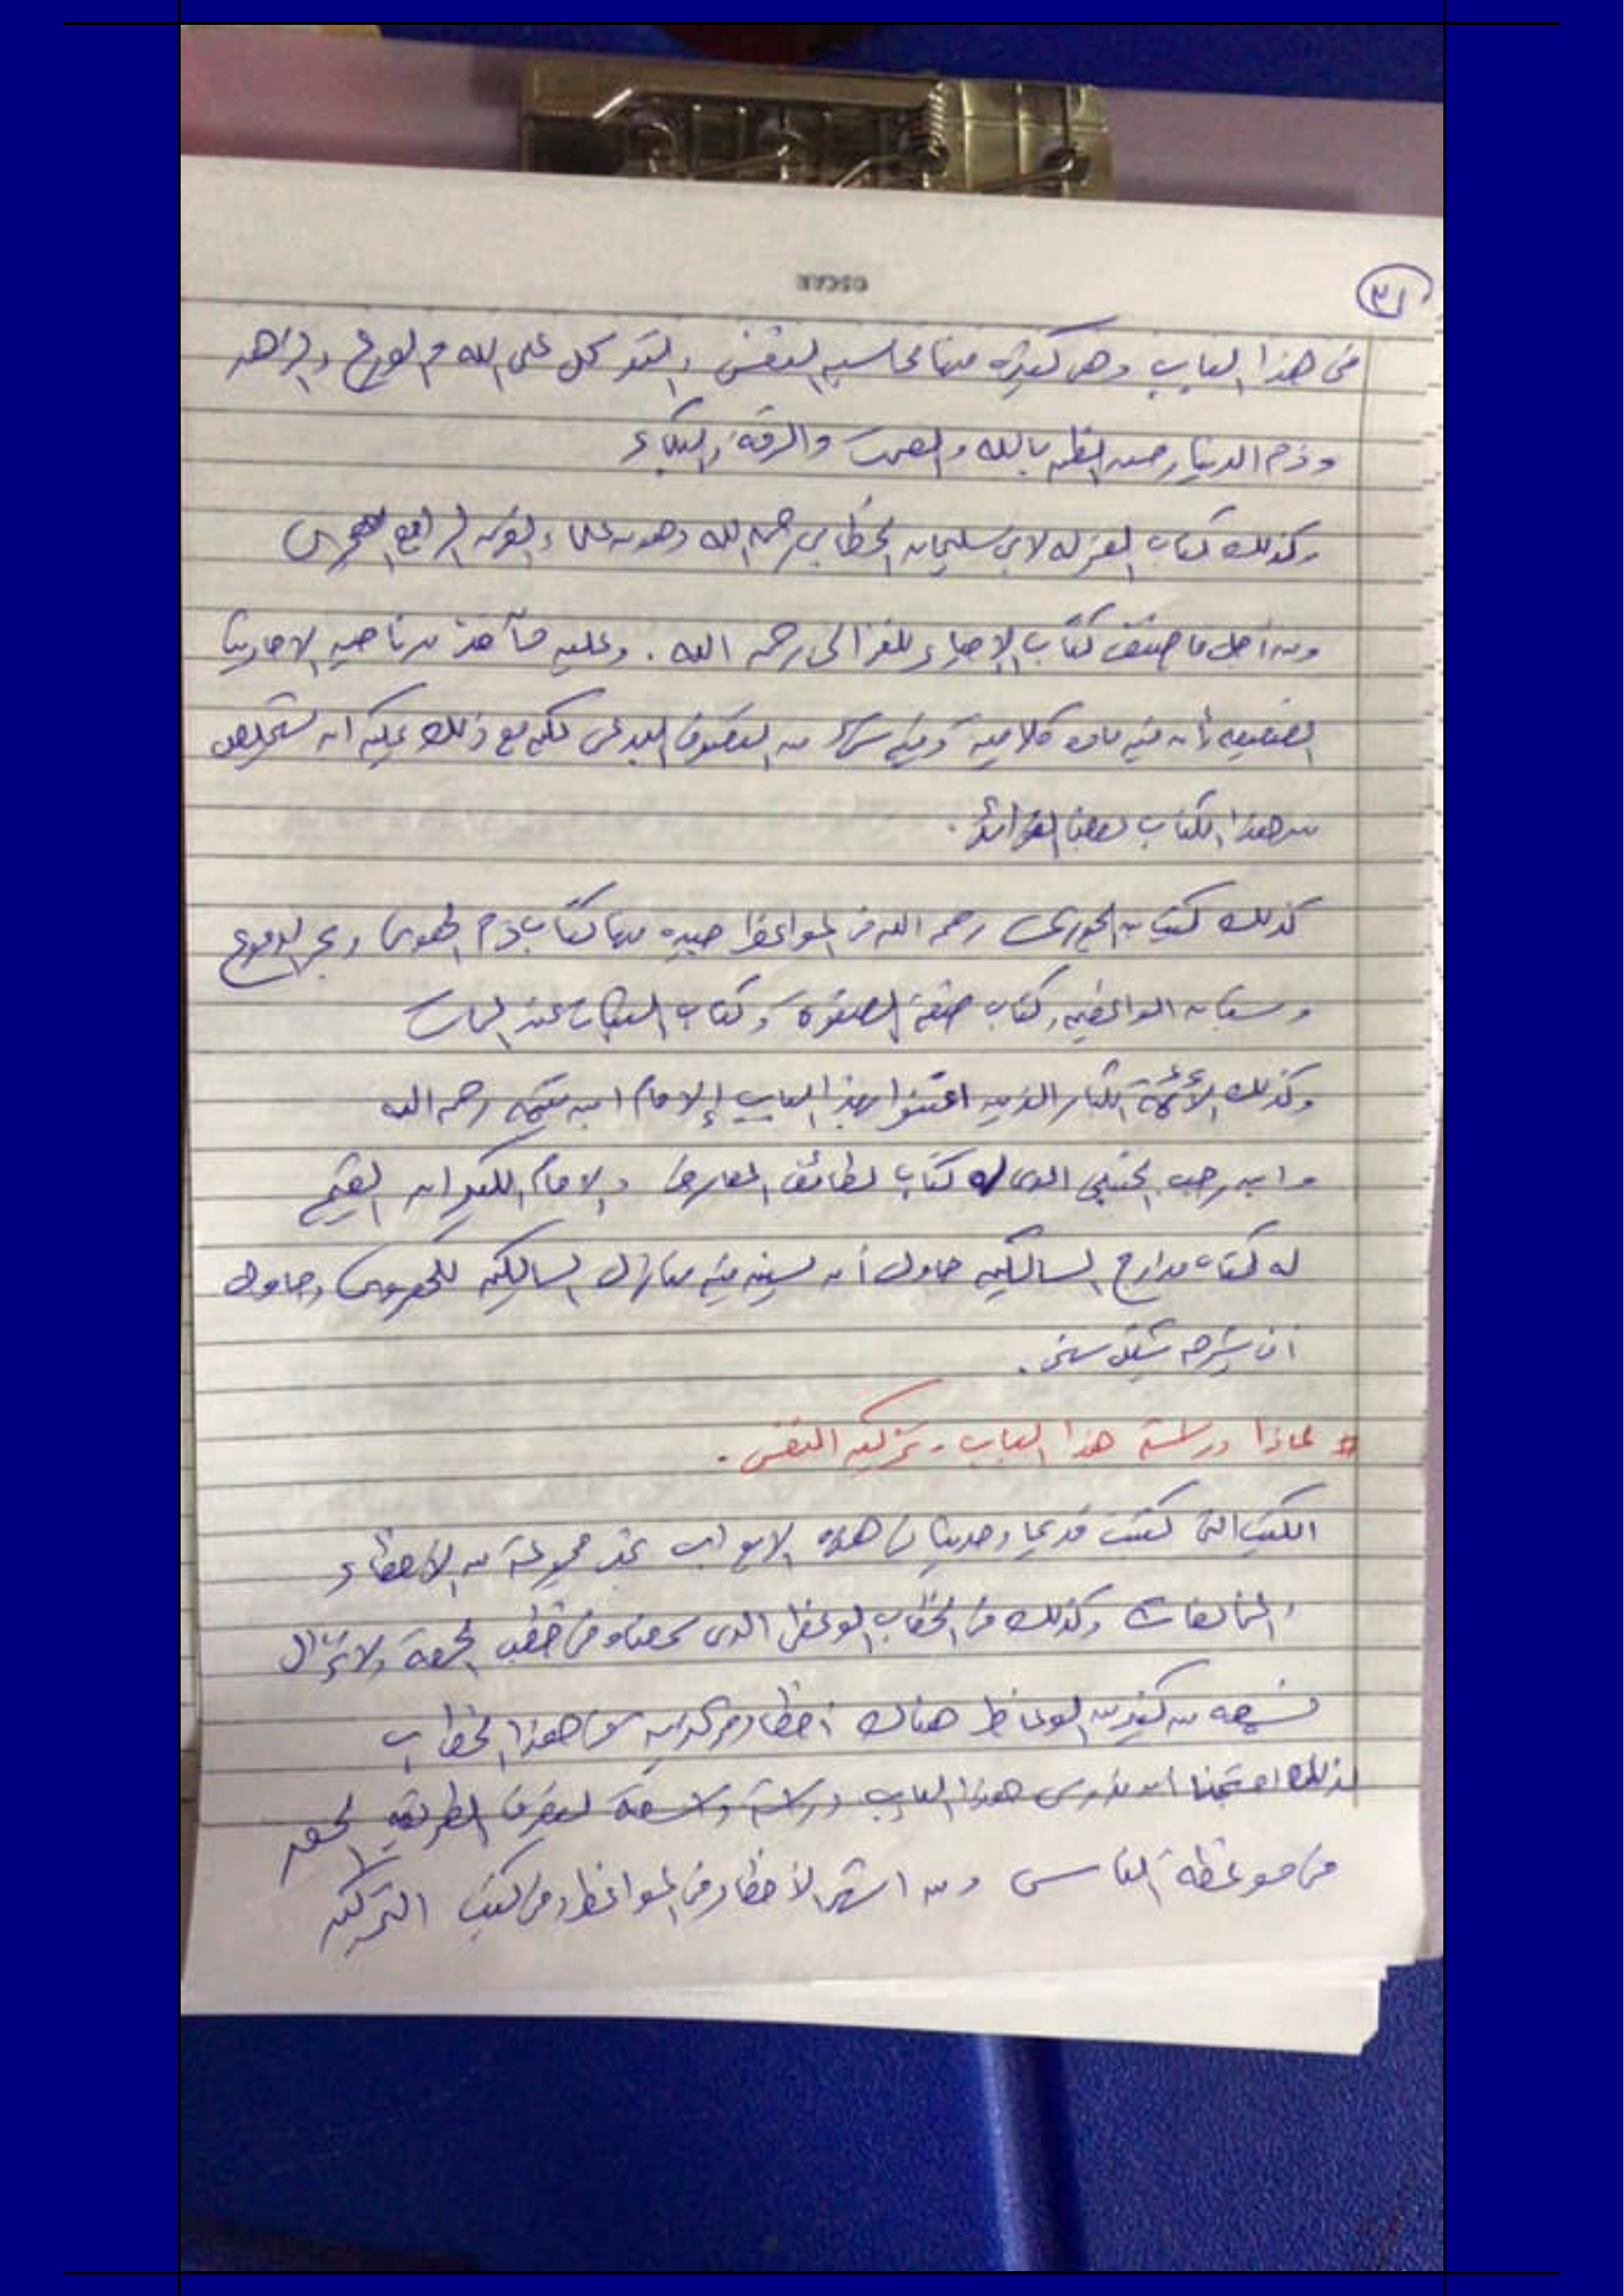 ٣١
في هذا الباب وهي كثيرة منها محاسبه النفس والتوكل على الله والورع والزهد
وذم الدنيا وحسن الظن بالله والصمت والرقة والبكاء
وكذلك كتاب العزله لابي سليمان الخطابي رحمه الله وهو من علماء القرن الرابع الهجري
ومن أجل ما صنف كتاب الإحياء للغزالي رحمه الله . وعليه مآخذ من ناحيه الاحاديث
الضعيفه وأن فيه ماده كلاميه وفيه من التصوف البدعي لكن مع ذلك يمكن ان تستخلص
من هذا الكتاب بعض الفوائد .
كذلك كتب بن الجوزي رحمه الله في المواعظ جيده منها كتاب ذم الهوى وبحر الدموع
وبستان الواعظين وكتاب صفة الصفوة وكتاب الثبات عند الممات
وكذلك الأئمة الكبار الذين اعتنوا بهذا الباب الإمام ابن تيميه رحمه الله
وابن رجب الحنبلي الذي له كتاب لطائف المعارف والامام الكبير ابن القيم
له كتاب مدارج السالكين حاول أن يبين فيه منازل السالكين للهروي وحاول
ان يشرحه بشكل سني .
# لماذا دراسة هذا الباب وتزكيه النفس .
الكتب التي كتبت قديما وحديثا في هذه الابواب نجد مجموعة من الأخطاء
والمخالفات وكذلك في الخطاب الوعظي الذي سمعناه في خطب الجمعة ولا نزال
نسمعه من كثير من الوعاظ هناك أخطاء مركزيه في هذا الخطاب
لذلك احتجنا أن ندرس هذا الباب دراسة واسعة لنعرف الطريقه الحق
في موعظة الناس ومن اشهر الأخطاء في المواعظ وفي كتب التزكيه